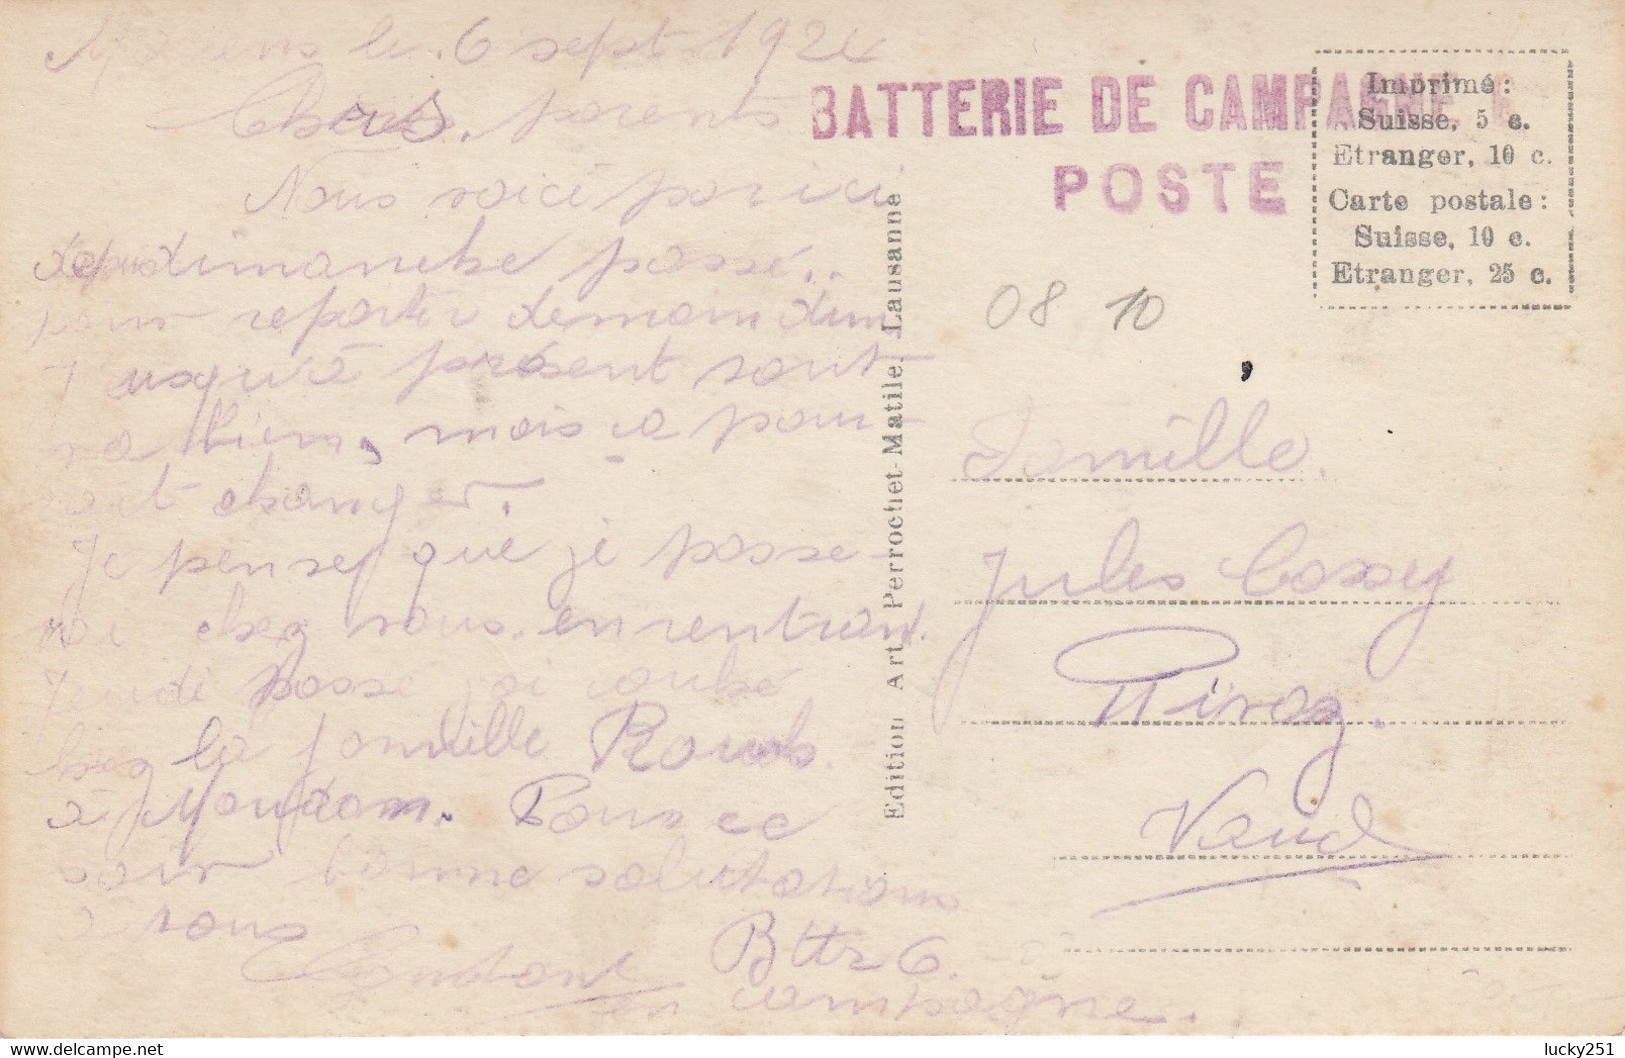 le 6 sept 192
Chers parents
Nous voici par ici
depuis dimanche passé.
pour repartir demain
Jusqu'à présent tout
va bien, mais ça pour-
rait changer.
Je pense que je passe-
rai chez vous en rentrant.
Jeudi passé j'ai couché
chez la famille
à Moudon. Pour ce
soir bonne salutations
à vous
Constant Bttr 6.
en campagne.
BATTERIE DE CAMPAGNE 6
POSTE
Imprimé:
Suisse, 5 c.
Etranger, 10 c.
Carte postale:
Suisse, 10 c.
Etranger, 25 c.
Edition Art. Perrochet-Matile, Lausanne
08 10
Famille
Jules Cossy
Vaud
lucky251
delcampe.net